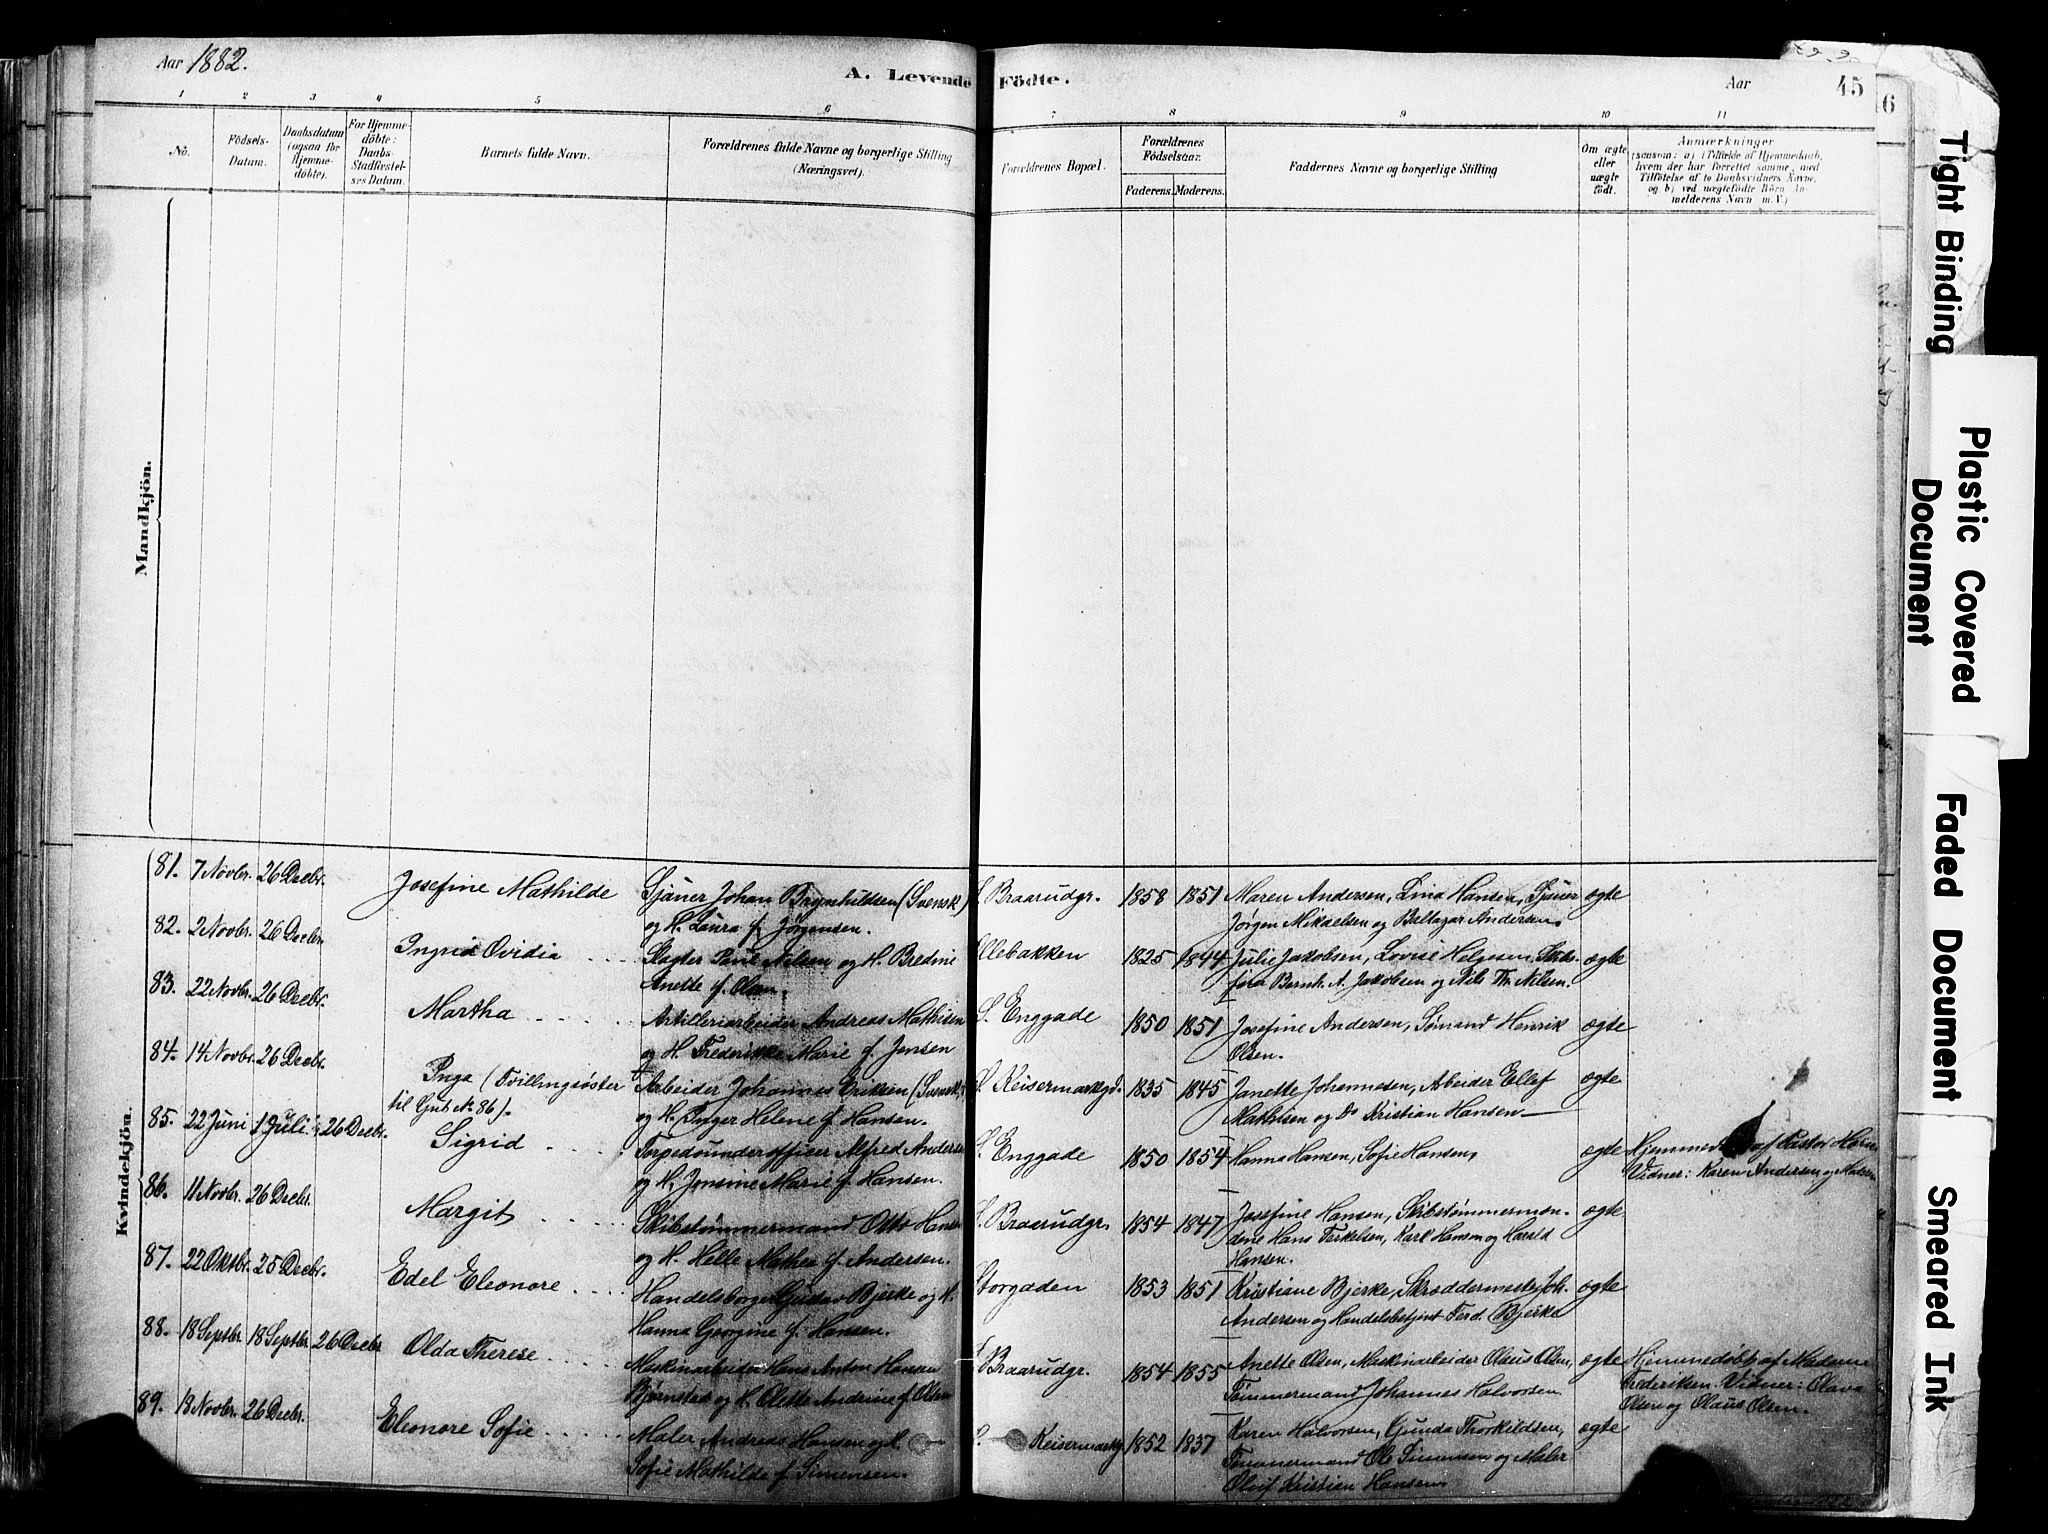 Aar 1882.
A. Levende Födte.
Aar
45
6
1 2 3 4 5 6 7 8 9 10 11
No.
Födsels-
Datum.
Daabsdatum
(ogsaa for
Hjemme-
döbte).
For Hjemme-
döbte:
Daabs-
Stadfæstel-
ses Datum.
Barnets fulde Navn.
Forældrenes fulde Navne og borgerlige Stilling
(Næringsvei).
Forældrenes Bopæl.
Forældrenes
Födselsaar.
Faderens. Moderens.
Faddernes Navne og borgerlige Stilling
Om ægte
eller
uægte
födt.
Anmærkninger
(saasom: a) i Tilfælde af Hjemmedaab,
hvem der har forrettet samme, med
Tilföielse af to Daabsvidners Navne,
og b) ved uægtefödte Börn An-
melderens Navn m. V.)
Mandkjön.
Kvindekjön.
81. 7 Novbr. 26 Decbr. Josefine Mathilde Sjauer Johan Brynhildsen (Svensk) S. Braarudgr. 1858 1851 Maren Andersen, Lina Hansen, Sjauer ægte
og H. Laura f. Jørgensen. Jørgen Mikaelsen og Baltazar Andersen.
82. 2 Novbr. 26 Decbr. Ingrid Ovidia Slagter Paul Nilsen og H. Bredine Ollebakken 1825 1844 Julie Jakobsen, Lovise Helgesen, Skibs- ægte
Anette f. Olsen. fører Bernh. A. Jakobsen og Nils Th. Nilsen.
83. 22 Novbr. 26 Decbr. Martha Artilleriarbeider Andreas Mathisen S. Enggade 1850 1851 Josefine Andersen, Sømand Henrik ægte
og H. Frederikke Marie f. Jensen Olsen.
84. 14 Novbr. 26 Decbr. Inga (Tvillingsøster Arbeider Johannes Eriksen (Svensk) S. Keisermarkgd. 1835 1845 Janette Johannesen, Abeider Ellef ægte
til Gut No 86). og H. Inger Helene f. Hansen. Mathisen og Do Kristian Hansen
85. 22 Juni 1 Juli 26 Decbr. Sigrid Torpedounderofficer Alfred Andersen S. Enggade 1850 1854 Hanna Hansen, Sofie Hansen ægte Hjemmed af Pastor Horn
og H. Jensine Marie f. Hansen. Vidner: Karen Andersen og
86. 11 Novbr. 26 Decbr. Margit Skibstømmermand Otto Hansen S. Braarudgr. 1854 1847 Josefine Hansen, Skibstømmermæn- ægte
og H. Helle Mathea f. Andersen. dene Hans Terkelsen, Karl Hansen og Harald
Hansen.
87. 22 Oktbr. 25 Decbr. Edel Eleonore Handelsborger Gustav Bjerke og H. Storgaden 1853 1851 Kristiane Bjerke, Skræddermester Joh. ægte
Hanna Georgine f. Hansen. Andersen og Handelsbetjent Ferd. Bjerke
88. 18 Septbr. 18 Septbr. 26 Decbr. Olda Therese Maskinarbeider Hans Anton Hansen S. Braarudgr. 1854 1855 Anette Olsen, Maskinarbeider Olaus Olsen, ægte Hjemmedøbt af Madam
Bjørnstad og H. Olette Andrine f. Olsen Tømmermand Johannes Halvorsen. Frederiksen. Vidner: Olava
Olsen og Olaus Olsen.
89. 18 Novbr. 26 Decbr. Eleonore Sofie Maler Andreas Hansen og H. S. Keisermarkg. 1852 1837 Karen Halvorsen, Gunda Thorkildsen, ægte
Sofie Mathilde f. Simensen. Tømmermand Ole Simensen og Maler
Oluf Kristian Hansen
Tight Binding
Plastic Covered
Document
Faded Document
Smeared Ink